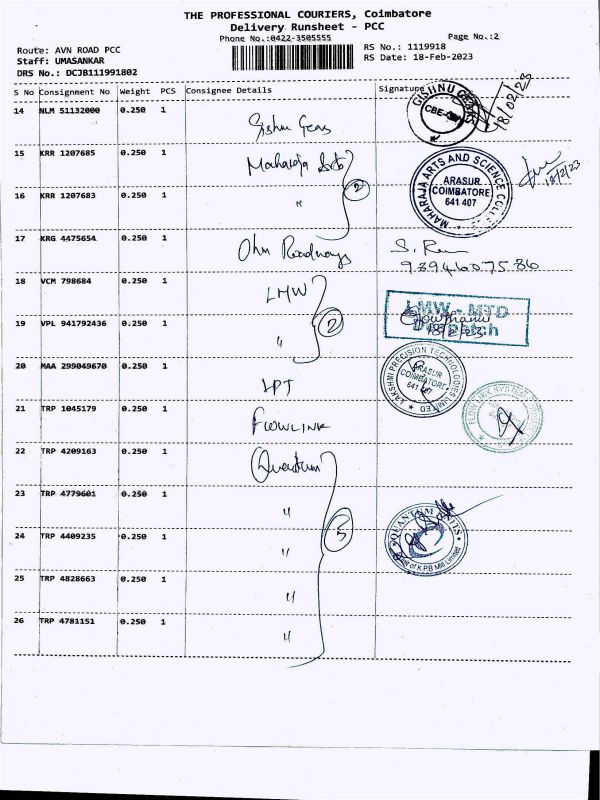 THE PROFESSIONAL COURIERS, Coimbatore
Delivery Runsheet - PCC
Phone No.:0422-3505555
Page No.:2
Route: AVN ROAD PCC
RS No.: 1119918
Staff: UMASANKAR
RS Date: 18-Feb-2023
DRS No.: DCJB111991802
S No Consignment No Weight PCS Consignee Details Signature
14 NLM 51132000 0.250 1 Gishnu Gears
GISHNU GEARS
CBE-
18/02/23
15 KRR 1207685 0.250 1 Maharaja Arts
MAHARAJA ARTS AND SCIENCE COLLEGE
ARASUR
COIMBATORE
641 407
18/2/23
16 KRR 1207683 0.250 1 "
2
17 KRG 4475654 0.250 1 Ohm Roadways
9894607586
18 VCM 798684 0.250 1 LMW
LMW - MTD
Dispatch
18/2/23
19 VPL 941792436 0.250 1 "
2
20 MAA 299049670 0.250 1 LPT
LAKSHMI PRECISION TECHNOLOGIES LIMITED
ARASUR
COIMBATORE
641 407
21 TRP 1045179 0.250 1 FLOWLINK
FLOW LINK SYSTEMS
22 TRP 4209163 0.250 1 Quantum
23 TRP 4779601 0.250 1 "
5
24 TRP 4409235 0.250 1 "
QUANTUM KNITS
of K.P.R Mill Limited
25 TRP 4828663 0.250 1 "
26 TRP 4781151 0.250 1 "